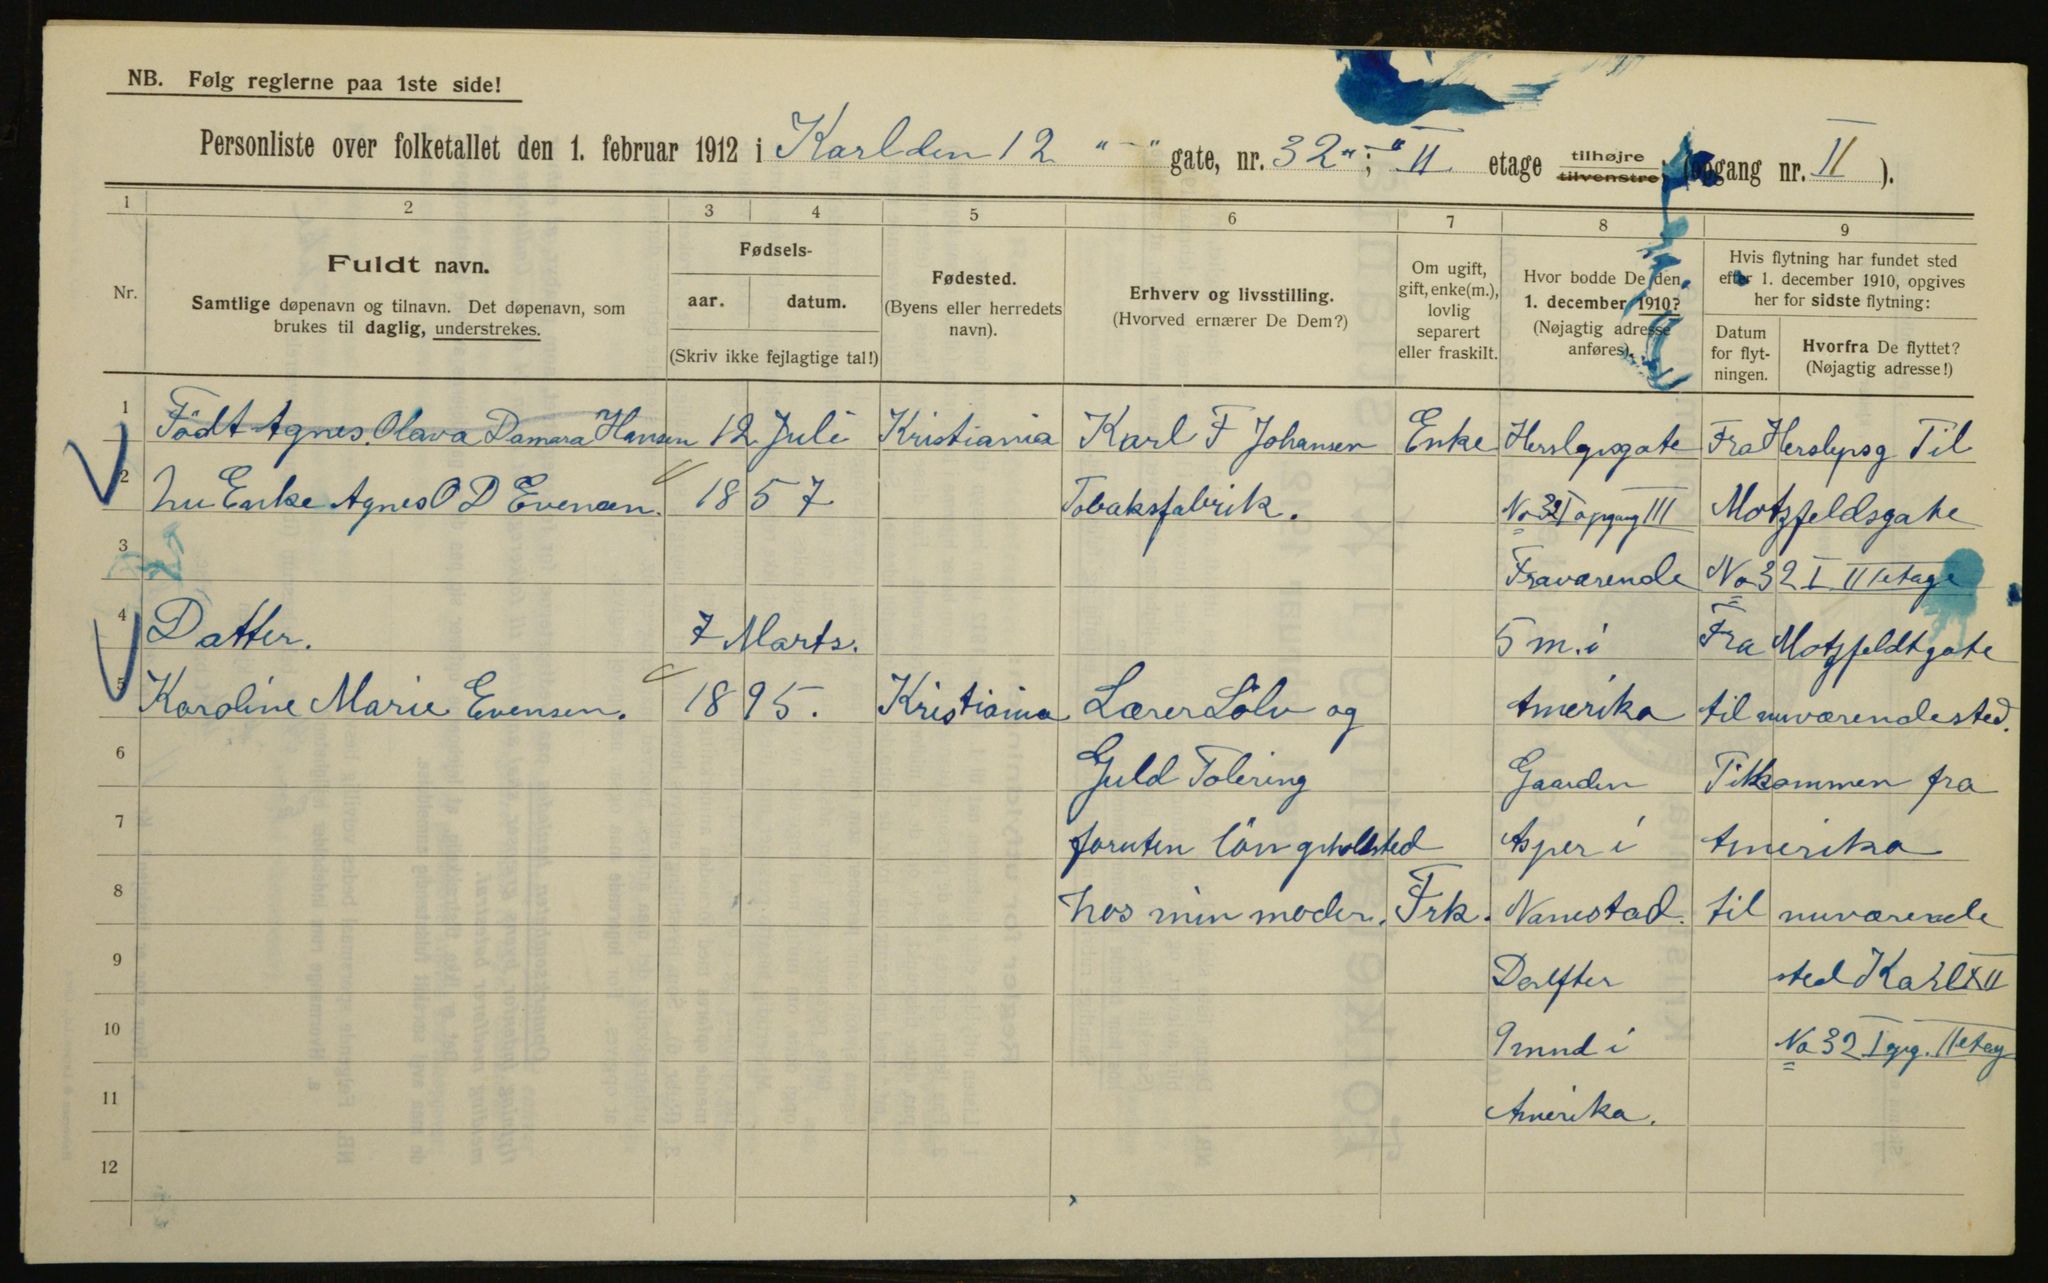 NB. Følg reglerne paa 1ste side!
Personliste over folketallet den 1. februar 1912 i Karl den 12 " - " gate, nr. 32 " ; " II etage tilhøjre tilvenstre, (opgang nr. II ).
1 2 3 4 5 6 7 8 9
Nr.
Fuldt navn.
Samtlige døpenavn og tilnavn. Det døpenavn, som
brukes til daglig, understrekes.
Fødsels-
aar. datum.
(Skriv ikke fejlagtige tal!)
Fødested.
(Byens eller herredets
navn).
Erhverv og livsstilling.
(Hvorved ernærer De Dem?)
Om ugift,
gift, enke(m.),
lovlig
separert
eller fraskilt.
Hvor bodde De den
1. december 1910?
(Nøjagtig adresse
anføres).
Hvis flytning har fundet sted
efter 1. december 1910, opgives
her for sidste flytning:
Datum
for flyt-
ningen.
Hvorfra De flyttet?
(Nøjagtig adresse!)
1 Födt Agnes Olava Damara Hansen 12 Juli Kristiania Karl F Johansen Enke Herslgvsgate Fra Herslepsg Til
2 nu Enke Agnes O D Evensen. 1857 Tobaksfabrik. No 32 I opgang III Motzfeldsgate
3 Fraværende No 32 I III etage
4 Datter. 7 Marts. 5 m. i Fra Motzfeldtgate
5 Karoline Marie Evensen. 1895. Kristiania Lærer Sölv og Amerika til nuværendested.
6 Guld Polering Gaarden Tilkommen fra
7 foruten lön Asper i Amerika
8 hos min moder. Frk. Nanestad. til nuværende
9 Derefter sted Karl XII
10 9 mnd i No 32 I opg. II etag
11 Amerika.
12